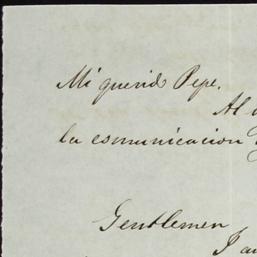 Mi querido Pepe.
Al
la comunicacion
Gentlemen
I am